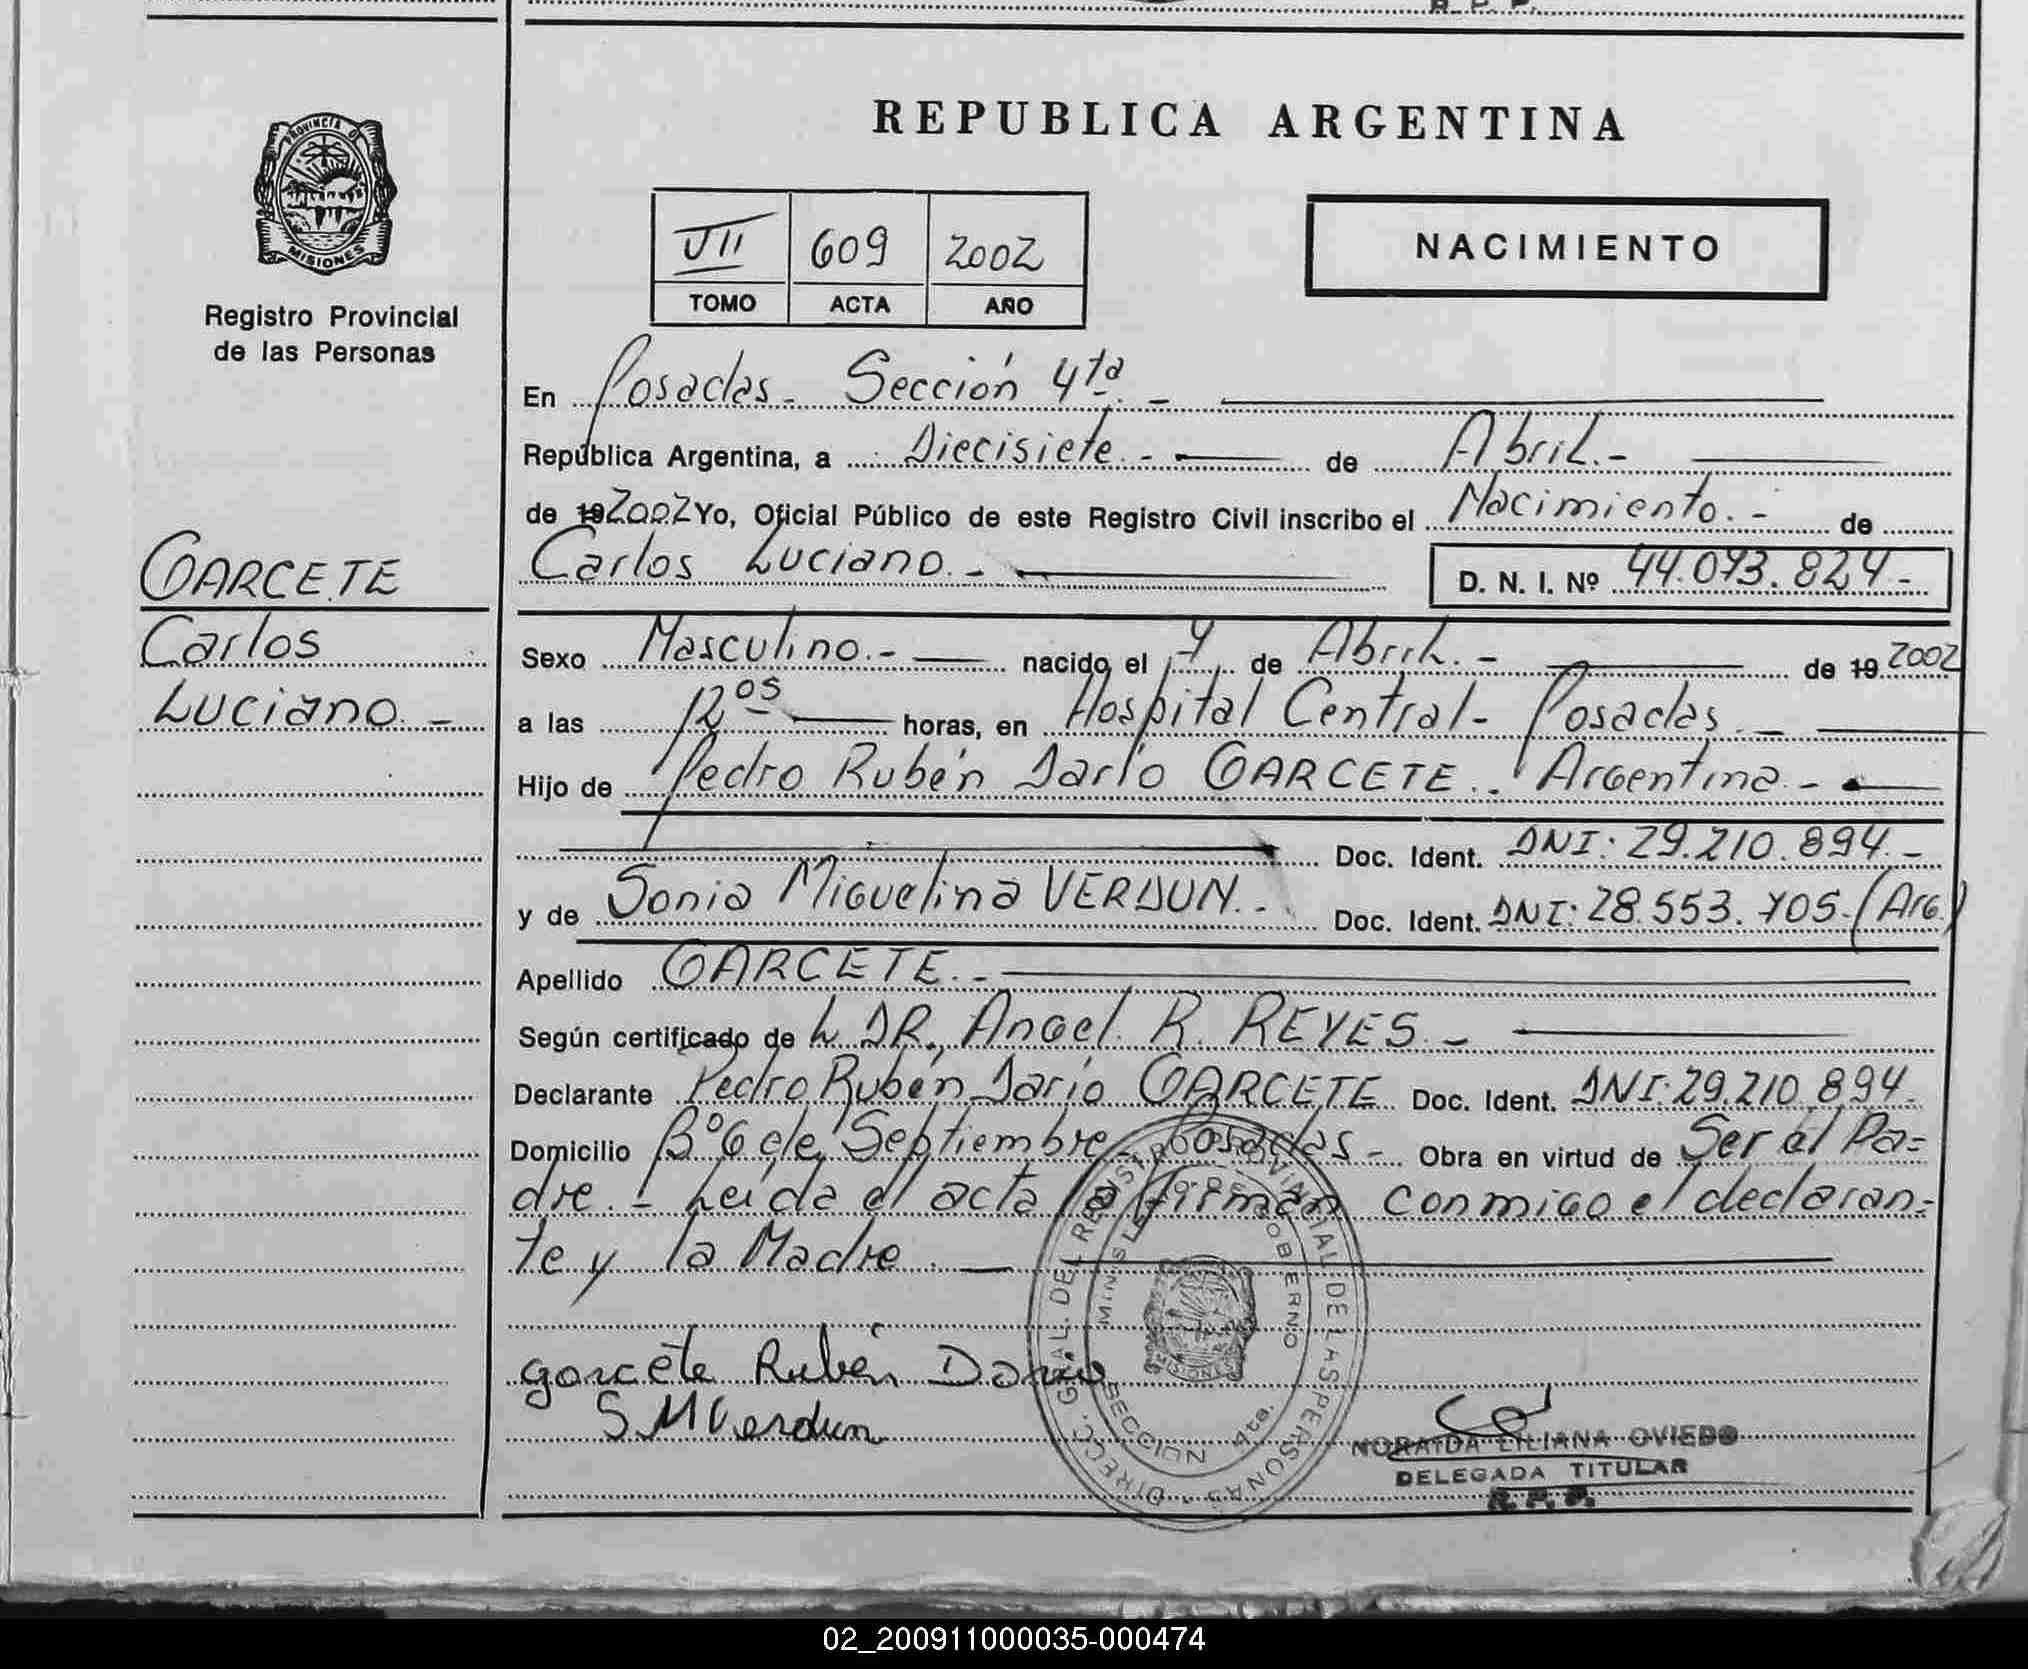 R. P. P.
PROVINCIA DE
MISIONES
Registro Provincial
de las Personas
REPUBLICA ARGENTINA
VII 609 2002
TOMO ACTA AÑO
NACIMIENTO
En Posadas - Sección 4ta. -
República Argentina, a Diecisiete. - de Abril. -
de 19 2002 Yo, Oficial Público de este Registro Civil inscribo el Nacimiento. - de
Carlos Luciano. - D. N. I. Nº 44.073.824 -
GARCETE
Carlos
Luciano. -
Sexo Masculino. - nacido el 4 de Abril. - de 19 2002
a las 12 05 horas, en Hospital Central - Posadas. -
Hijo de Pedro Rubén Darío GARCETE. Argentina. -
Doc. Ident. DNI: 29.210.894. -
y de Sonia Miguelina VERDUN. - Doc. Ident. DNI: 28.553.705. (Arg.)
Apellido GARCETE. -
Según certificado de L DR. Angel. R. REYES. -
Declarante Pedro Rubén Darío GARCETE Doc. Ident. DNI: 29.210.894.
Domicilio Bº 6 de Septiembre - Posadas - Obra en virtud de Ser el Pa=
dre. - Leída el acta la firman conmigo el declaran=
te y la Madre. -
garcete Rubén Dario
S M Verdun
DIRECC. GRAL. DEL REGISTRO PROVINCIAL DE LAS PERSONAS
GOBIERNO
SECCION 4ta.
MISIONES
NORAIDA LILIANA OVIEDO
DELEGADA TITULAR
R. P. P.
02_200911000035-000474